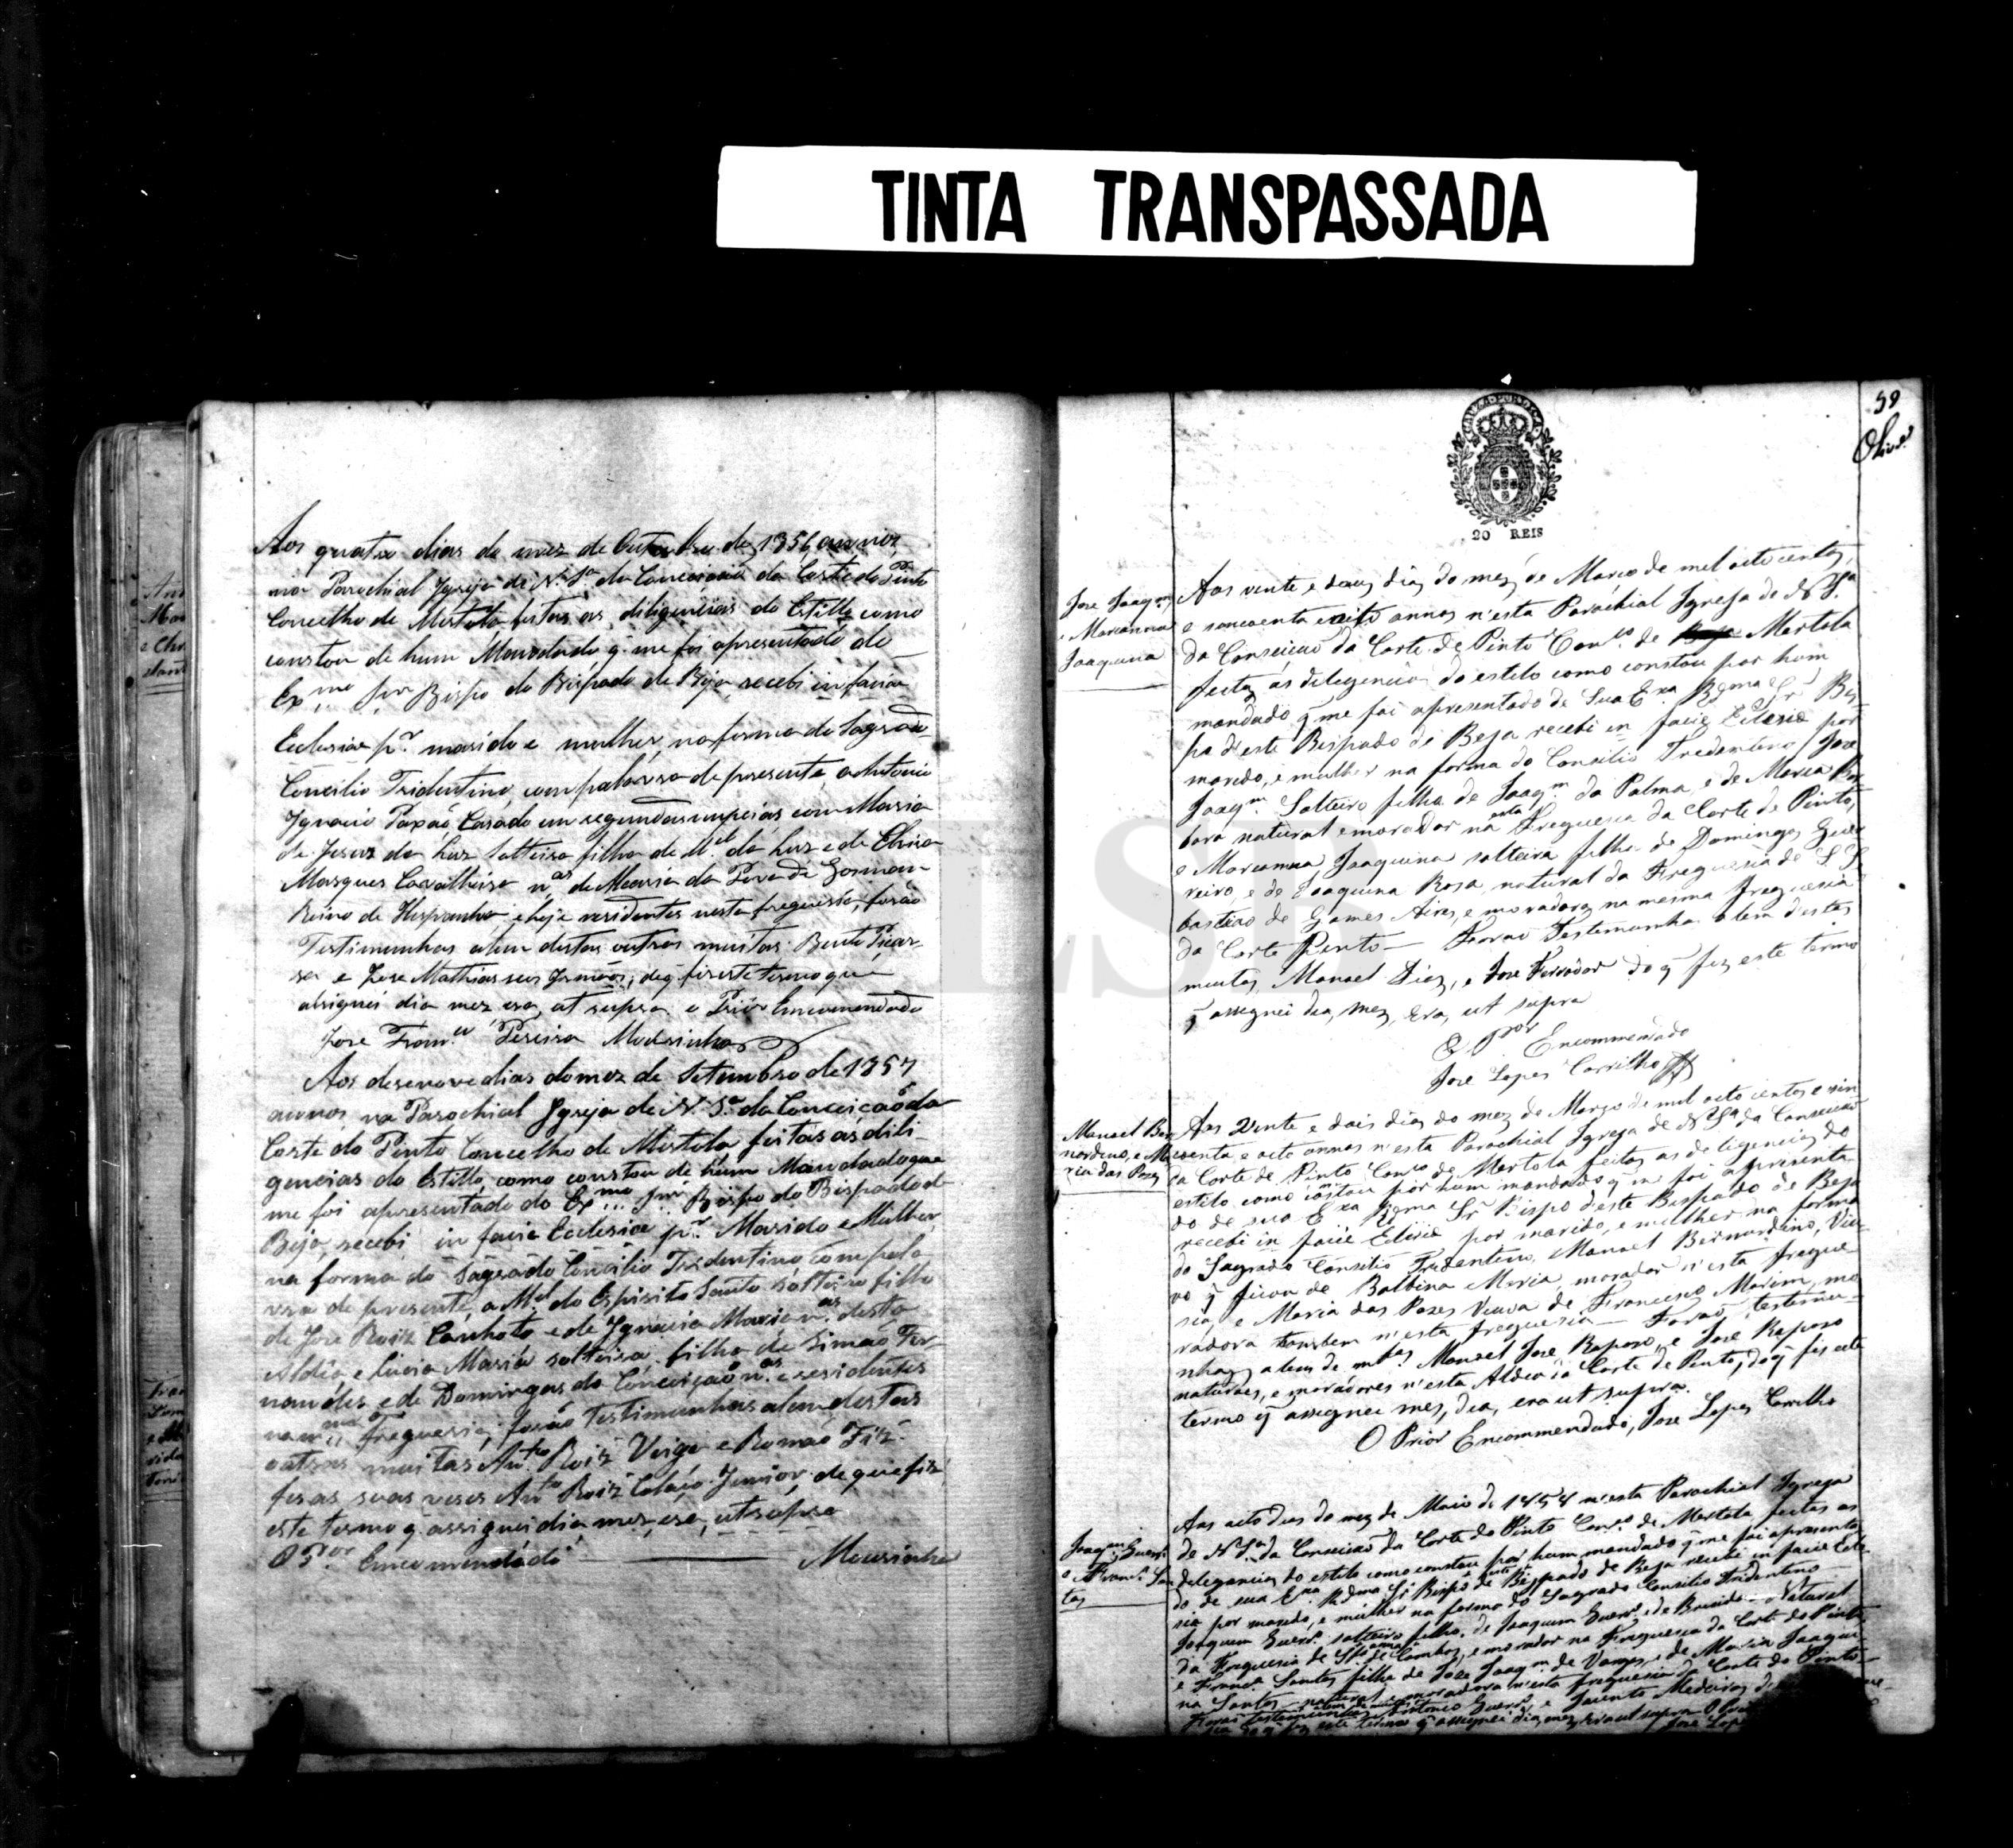 TINTA TRANSPASSADA
Aos quatro dias do mez de Outubro de 1856 annos,
na Parochial Igreja de N. Sª. da Conceição da Corte do Pinto
Concelho de Mertola feitas as diligencias do Estillo como
constou de hum Mandado q. me foi apresentado do
Exmo Snr Bispo do Bispado de Beja, recebi in facia
Ecclesiae pr. marido e mulher, na forma do Sagrado
Concilio Tridentino, com palavras de presente, a Antonio
Ignacio Paxão, Casado em segundas nupcias com Maria
de Jesus da Luz Solteira filha de Mel. da Luz e de
Marques Carvalheira nas. de
Reino de Hespanha e hoje residentes nesta freguesia, forão
Testimunhas alem destas outras muitas: Bento
e Jose Mathias seus Irmãos; de q fiz este termo que
absignei dia mez era ut supra o Prior Encomendado
Jose Franco. Pereira Mousinho
Aos desenove dias do mez de Setembro de 1857
annos, na Parochial Igreja de N. Sª. da Conceição da
Corte do Pinto Concelho de Mertola, feitas as dili
gencias do Estillo, como constou de hum Mandado que
me foi apresentado do Exmo Snr Bispo do Bispado d
Beja, recebi in facia Ecclesiae pr. Marido e Mulher,
na forma do Sagrado Concilio Tridentino com pala
vras de presente, a Mel. do Espirito Santo solteiro filho
de Jose Roiz Canhoto e de Ignacia Maria nas. desta
Aldia e Lucia Maria solteira, filha de Simão Fer
nandes e de Domingas da Conceição nas. e residentes
na mma. Freguesia; forão Testimunhas alem destas
outras muitas Anto. Roiz Veiga e Romão Friz.
fes as suas veses Anto. Roiz Colaço Junior; de que fiz
este termo q. assignei dia, mez, era, ut supra
O Pror Encomendado Mousinho
39
Olivª.
20 REIS
Jose Joaqm
e Marianna
Joaquina
Aos vente e dous dias do mez de Marco de mil oito centos
e sincoenta e oito annos n'esta Parochial Igreja de N Sª
da Conseicao da Corte de Pinto Conco. de Mertola
feitas as delegencias do estilo como constou por hum
mandado q me foi apresentado de Sua Exa. Rdma Sr Bis
po d'este Bispado de Beja recebi in facie Eclesie por
marido, e mulher na forma do Consilio Tredentino, Jose
Joaqm. Solteiro filho de Joaqm. da Palma, e de Maria Bar
bara natural e morador na esta Freguesia da Corte de Pinto,
e Marianna Joaquina solteira filha de Domingos Guer
reiro, e de Joaquina Rosa, natural da Freguesia de S. Se
bastião de Gomes Aires, e moradora na mesma freguesia
da Corte Pinto — Forao Testemunhas alem destas
muitas, Manoel Dias, e Jose Ferrador do q fiz este termo
q assignei dia, mez, era, ut supra
O Pror Encommendado
Jose Lopes Carrilho
Manoel Ber
nardino, e Ma
ria das Pazes
Aos Vinte e dois dias do mez de Março de mil oito centos e sin
coenta e oito annos n'esta Parochial Igreja de N Sª da Conseicao
da Corte de Pinto Conco de Mertola feitas as deligencias do
estilo como constou por hum mandado q me foi apresenta
do de sua Exa Rdma Sr Bispo d'este Bispado de Beja
recebi in facie Elisie por marido, e mulher na forma
do Sagrado Consilio Tredentino, Manoel Bernardino, Viu
vo q ficou de Balbina Maria, morador n'esta fregue
sia, e Maria das Pazes Viuva de Francisco Marim, mo
radora tambem n'esta freguesia — Forão testemu
nhas alem de mtas. Manoel Jose Raposo, e Jose Raposo
naturaes, e moradores n'esta Aldeia da Corte de Pinto, do q fis este
termo q assignei mes, dia, era ut supra.
O Prior Encommendado, Jose Lopes Carrilho
Joaqm. Guerr.
e Franca. San
tos
Aos oito dias do mez de Maio de 1858 n'esta Parochial Igreja
de N Sª da Conseicao da Corte do Pinto Conco. de Mertola feitas as
delegencias do estilo como constou por hum mandado q me foi apresenta
do de sua Exa. Rdma Sr Bispo d'este Bispado de Beja recebi in facie Ecle
sia por marido, e mulher na forma do Sagrado Consilio Tridentino
Joaquim Guerro. solteiro filho de Joaquim Guerro. e de Brisida — Natural
da Freguesia de Sta. Anna de Cambas, e morador na Freguesia da Corte do Pinto
e Franca. Santos filha de Jose Joaqm de Vargas, e de Maria Joaqui
na Santos — natural e moradora n'esta freguesia da Corte do Pinto
Forao testemunhas Antonio Guerro. e Jacento Medeiros
fez este termo q assignei dia, mez, era ut supra O
Jose Lop